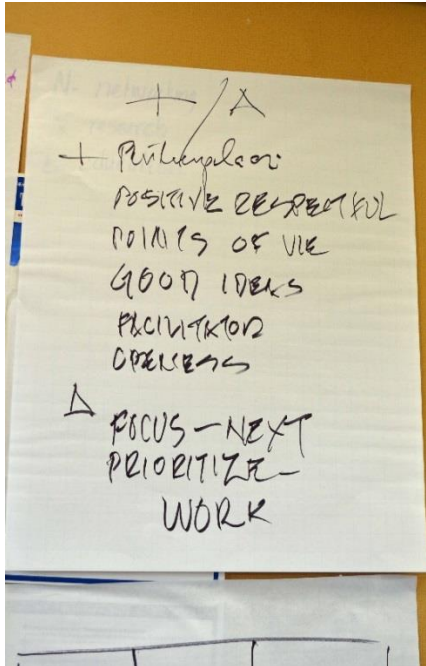 +/Δ
+ Participation
POSITIVE RESPECTFUL
POINTS OF VIE
GOOD IDEAS
FACILITATOR
OPENESS
Δ
FOCUS – NEXT
PRIORITIZE –
WORK